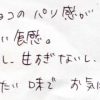 コのパリ感が
い食感。
し、甘すぎないし、
たい味で お気に